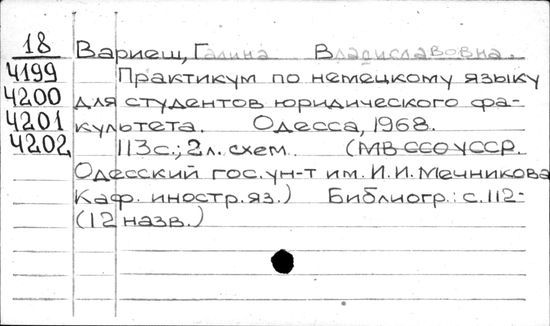 18 Вариеш, Галина Владиславовна.
4199 Практикум по немецкому языку
4200 для студентов юридического фа-
4201 культета. Одесса, 1968.
4202 113 с.; 2 л. схем. (МВ ССО УССР.
Одесский гос. ун-т им. И.И. Мечникова
Каф. иностр. яз.) Библиогр.: с. 112-
(12 назв.)